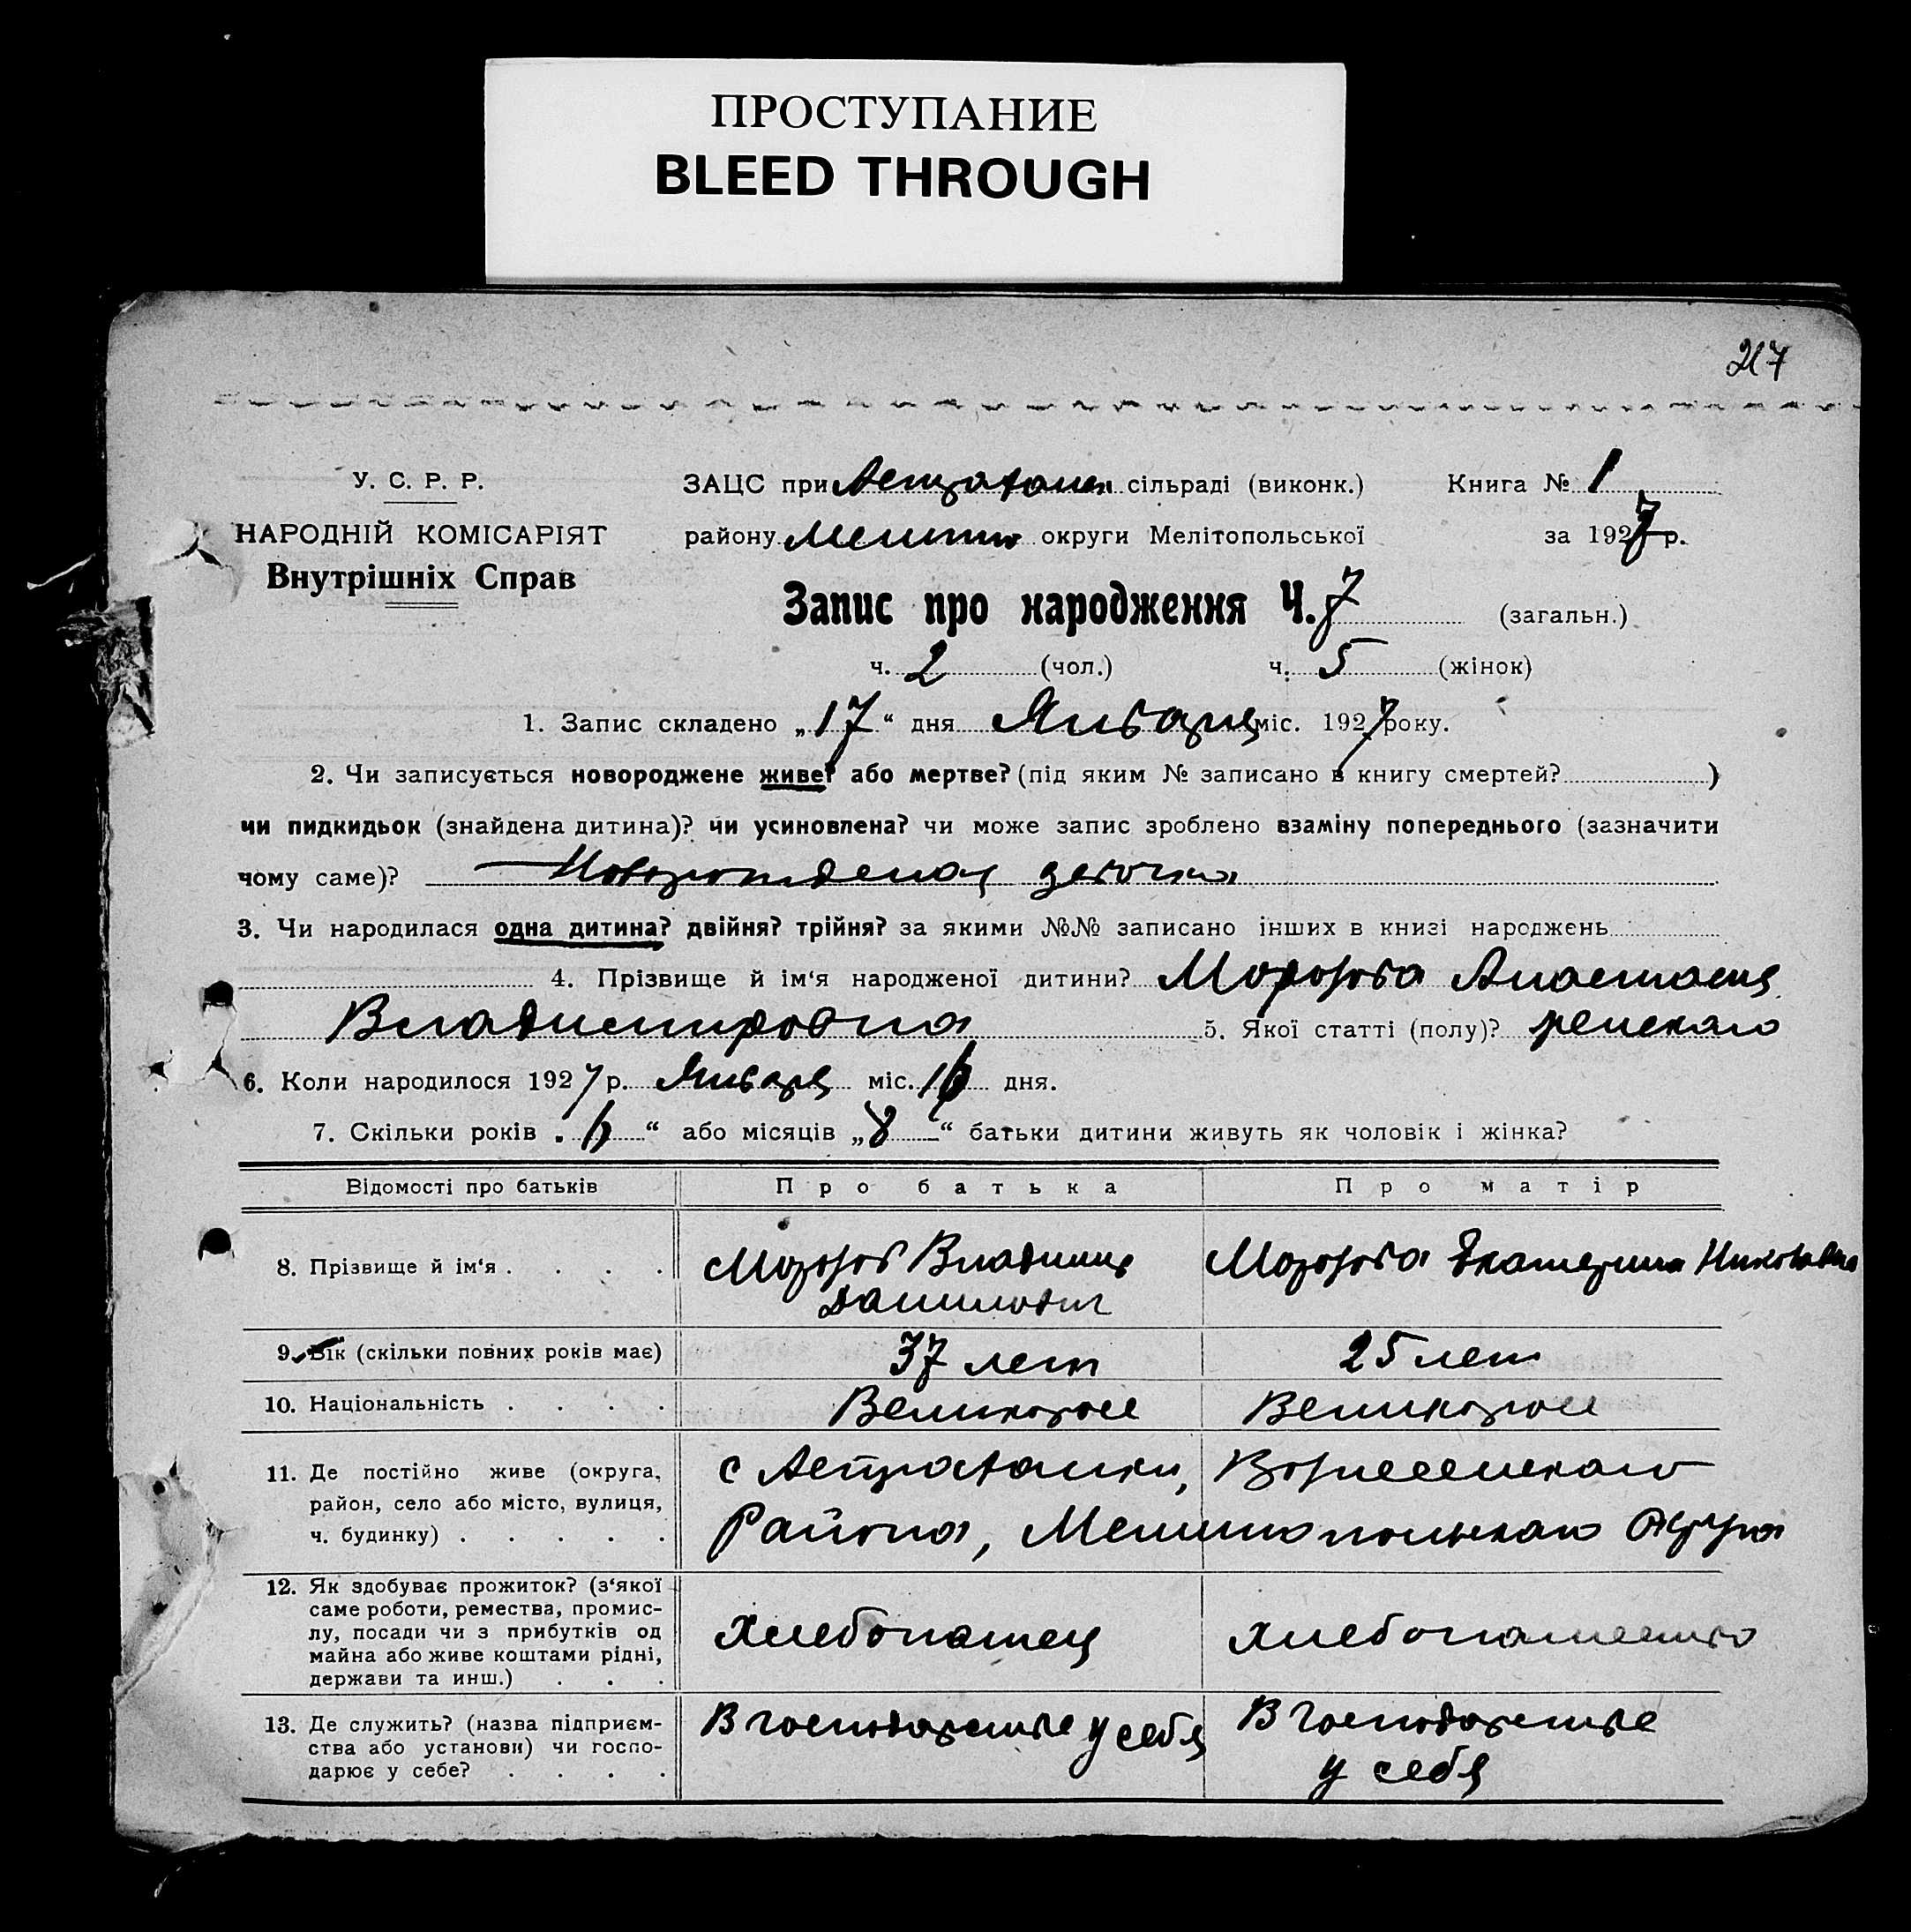 ПРОСТУПАНИЕ
BLEED THROUGH
217
У. С. Р. Р.
НАРОДНІЙ КОМІСАРІЯТ
Внутрішніх Справ
ЗАЦС при сільраді (виконк.) Книга № 1
району округи Мелітопольської за 1927 р.
Запис про народження Ч. 7 (загальн.)
ч. 2 (чол.) ч. 5 (жінок)
1. Запис складено „17“ дня Января міс. 1927 року.
2. Чи записується новороджене живе? або мертве? (під яким № записано в книгу смертей? )
чи пидкидьок (знайдена дитина)? чи усиновлена? чи може запис зроблено взаміну попереднього (зазначити
чому саме)? Новорожденая девочка
3. Чи народилася одна дитина? двійня? трійня? за якими №№ записано інших в книзі народжень
4. Прізвище й ім‘я народженої дитини? Морозова Анастасия
Владимировна 5. Якої статті (полу)? женскаго
6. Коли народилося 1927 р. Января міс. 16 дня.
7. Скільки років „6“ або місяців „8“ батьки дитини живуть як чоловік і жінка?
Відомості про батьків Про батька Про матір
8. Прізвище й ім‘я . . . . Морозов Владимир Морозова Екатерина Николавна
Данилович
9. Вік (скільки повних років має) 37 лет 25 лет
10. Національність . . . . Великоросс Великоросс
11. Де постійно живе (округа, район, село або місто, вулиця, ч. будинку) . . . . . с Астраханки, Вознесенскаго
Района, Мелитопольскаго Округа
12. Як здобуває прожиток? (з‘якої
саме роботи, ремества, промис-
лу, посади чи з прибутків од
майна або живе коштами рідні,
держави та инш.) . . .
Хлебопашец хлебопашество
13. Де служить? (назва підприєм-
ства або установи) чи госпо-
дарює у себе? . . . .
В господарстве у себя В господарстве
у себя